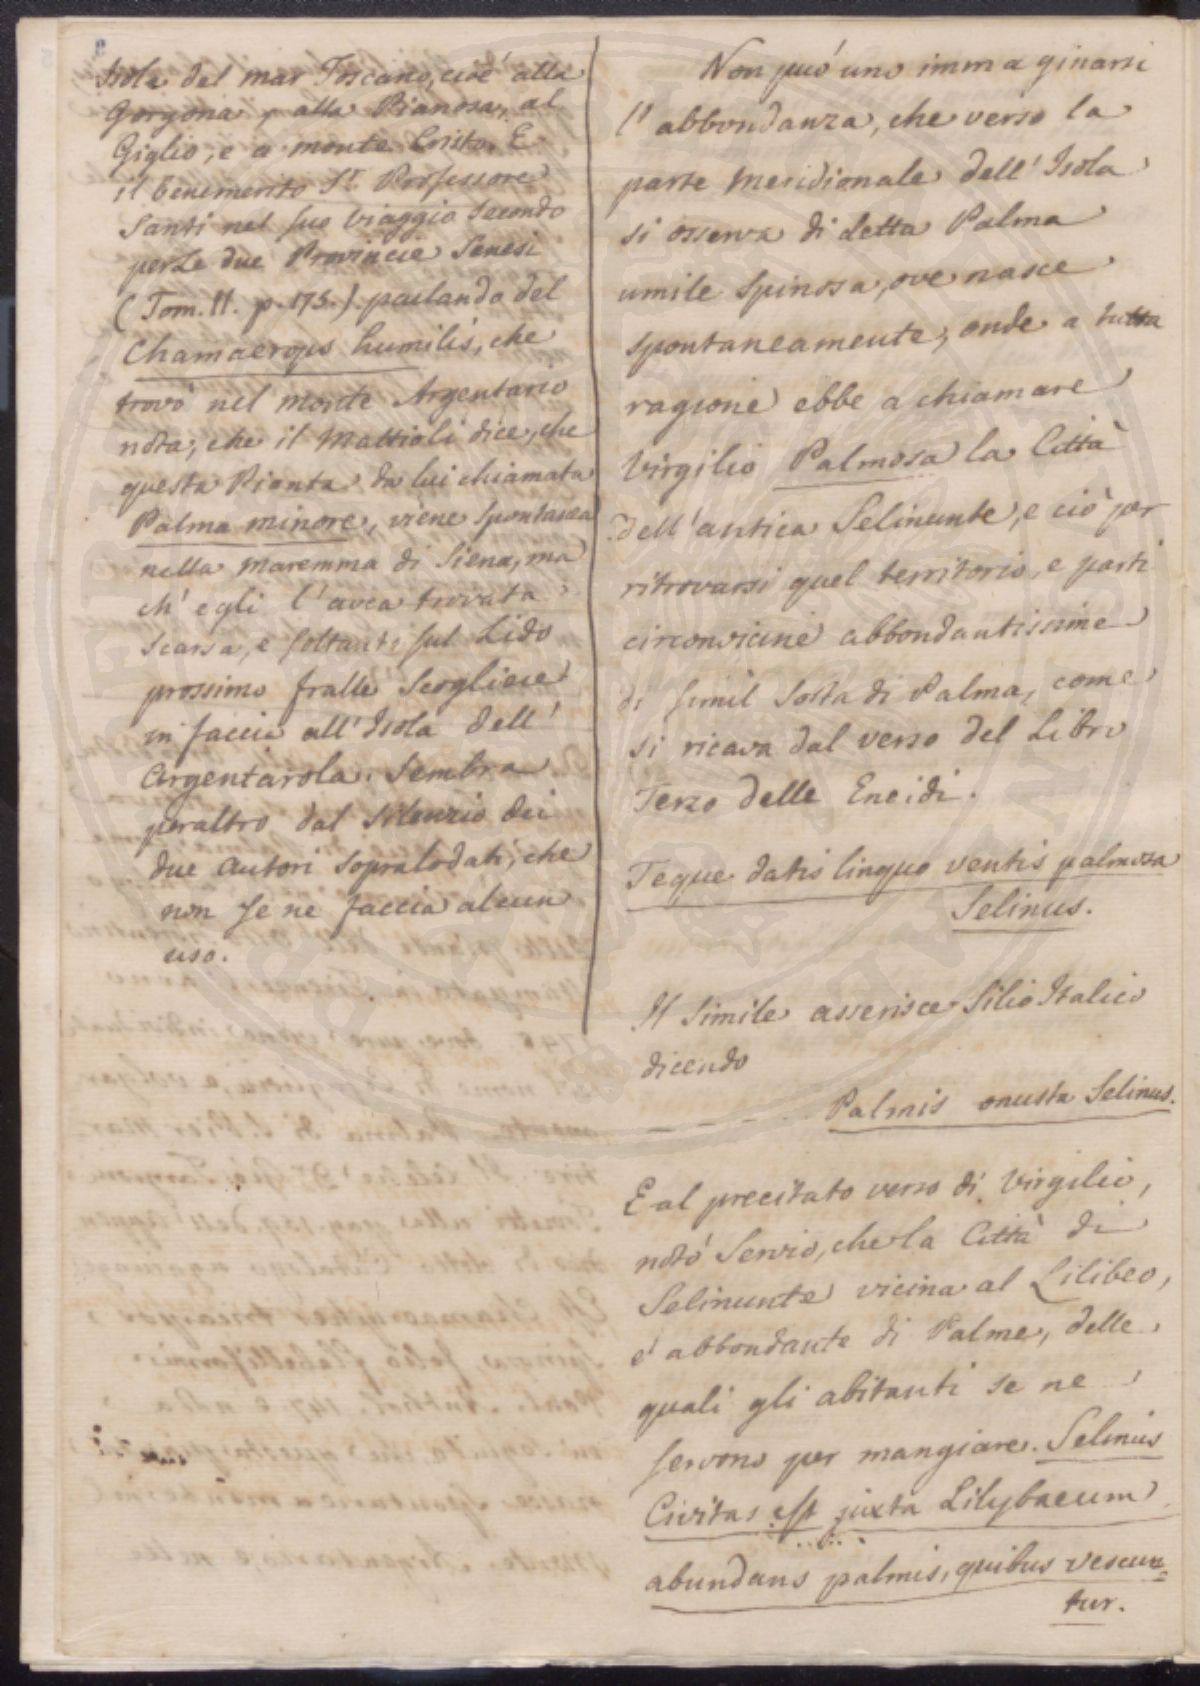 Isola del mar Toscano, cioè alla
Gorgona, alla Pianosa, al
Giglio, e a monte Cristo. E
il benemerito Sr. Professore
Santi nel suo viaggio secondo
per Le due Provincie Senesi
(Tom. II. p. 175.) parlando del
Chamaerops humilis, che
trovò nel monte Argentario
nota, che il Mattioli dice, che
questa Pianta da lui chiamata
Palma minore, viene spontanea
nella maremma di Siena, ma
ch' egli l' avea trovata
scarsa, e soltanti sul Lido
prossimo fralle Scogliere
in faccia all' Isola dell'
Argentarola. Sembra
peraltro dal Silenzio dei
due Autori Sopralodati, che
non se ne faccia alcun
uso.
Non può uno immaginarsi
l' abbondanza, che verso la
parte Meridionale dell' Isola
si osserva di detta Palma
umile Spinosa, ove nasce
spontaneamente, onde a tutta
ragione ebbe a chiamare
Virgilio Palmosa la Città
dell' antica Selinunte, e ciò per
ritrovarsi quel territorio, e parti
circonvicine abbondantissime
di simil Sorta di Palma, come
si ricava dal verso del Libro
Terzo delle Eneidi.
Teque datis linquo ventis palmosa
Selinus.
Il Simile asserisce Silio Italico
dicendo
- - - - Palmis onusta Selinus.
E al precitato verso di Virgilio,
notò Servio, che la Città di
Selinunte vicina al Lilibeo,
è abbondante di Palme, delle
quali gli abitanti se ne
servono per mangiare. Selinus
Civitas est juxta Lilybaeum
abundans palmis, quibus vescun=
tur.